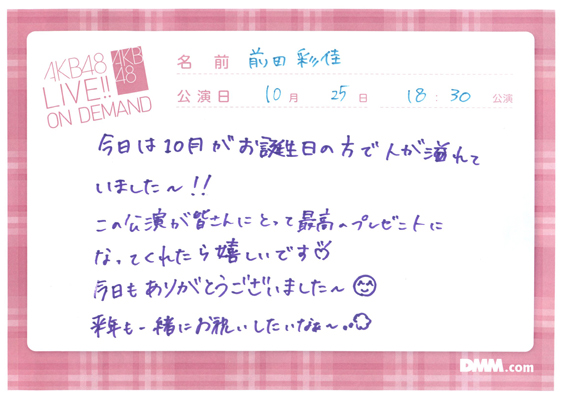 AKB48
LIVE!!
ON DEMAND
AKB
48
名前 前田彩佳
公演日 10月 25日 18:30 公演
今日は10月がお誕生日の方で人が溢れて
いました〜!!
この公演が皆さんにとって最高のプレゼントに
なってくれたら嬉しいです
今日もありがとうございました〜
来年も一緒にお祝いしたいなぁ〜..
DMM.com